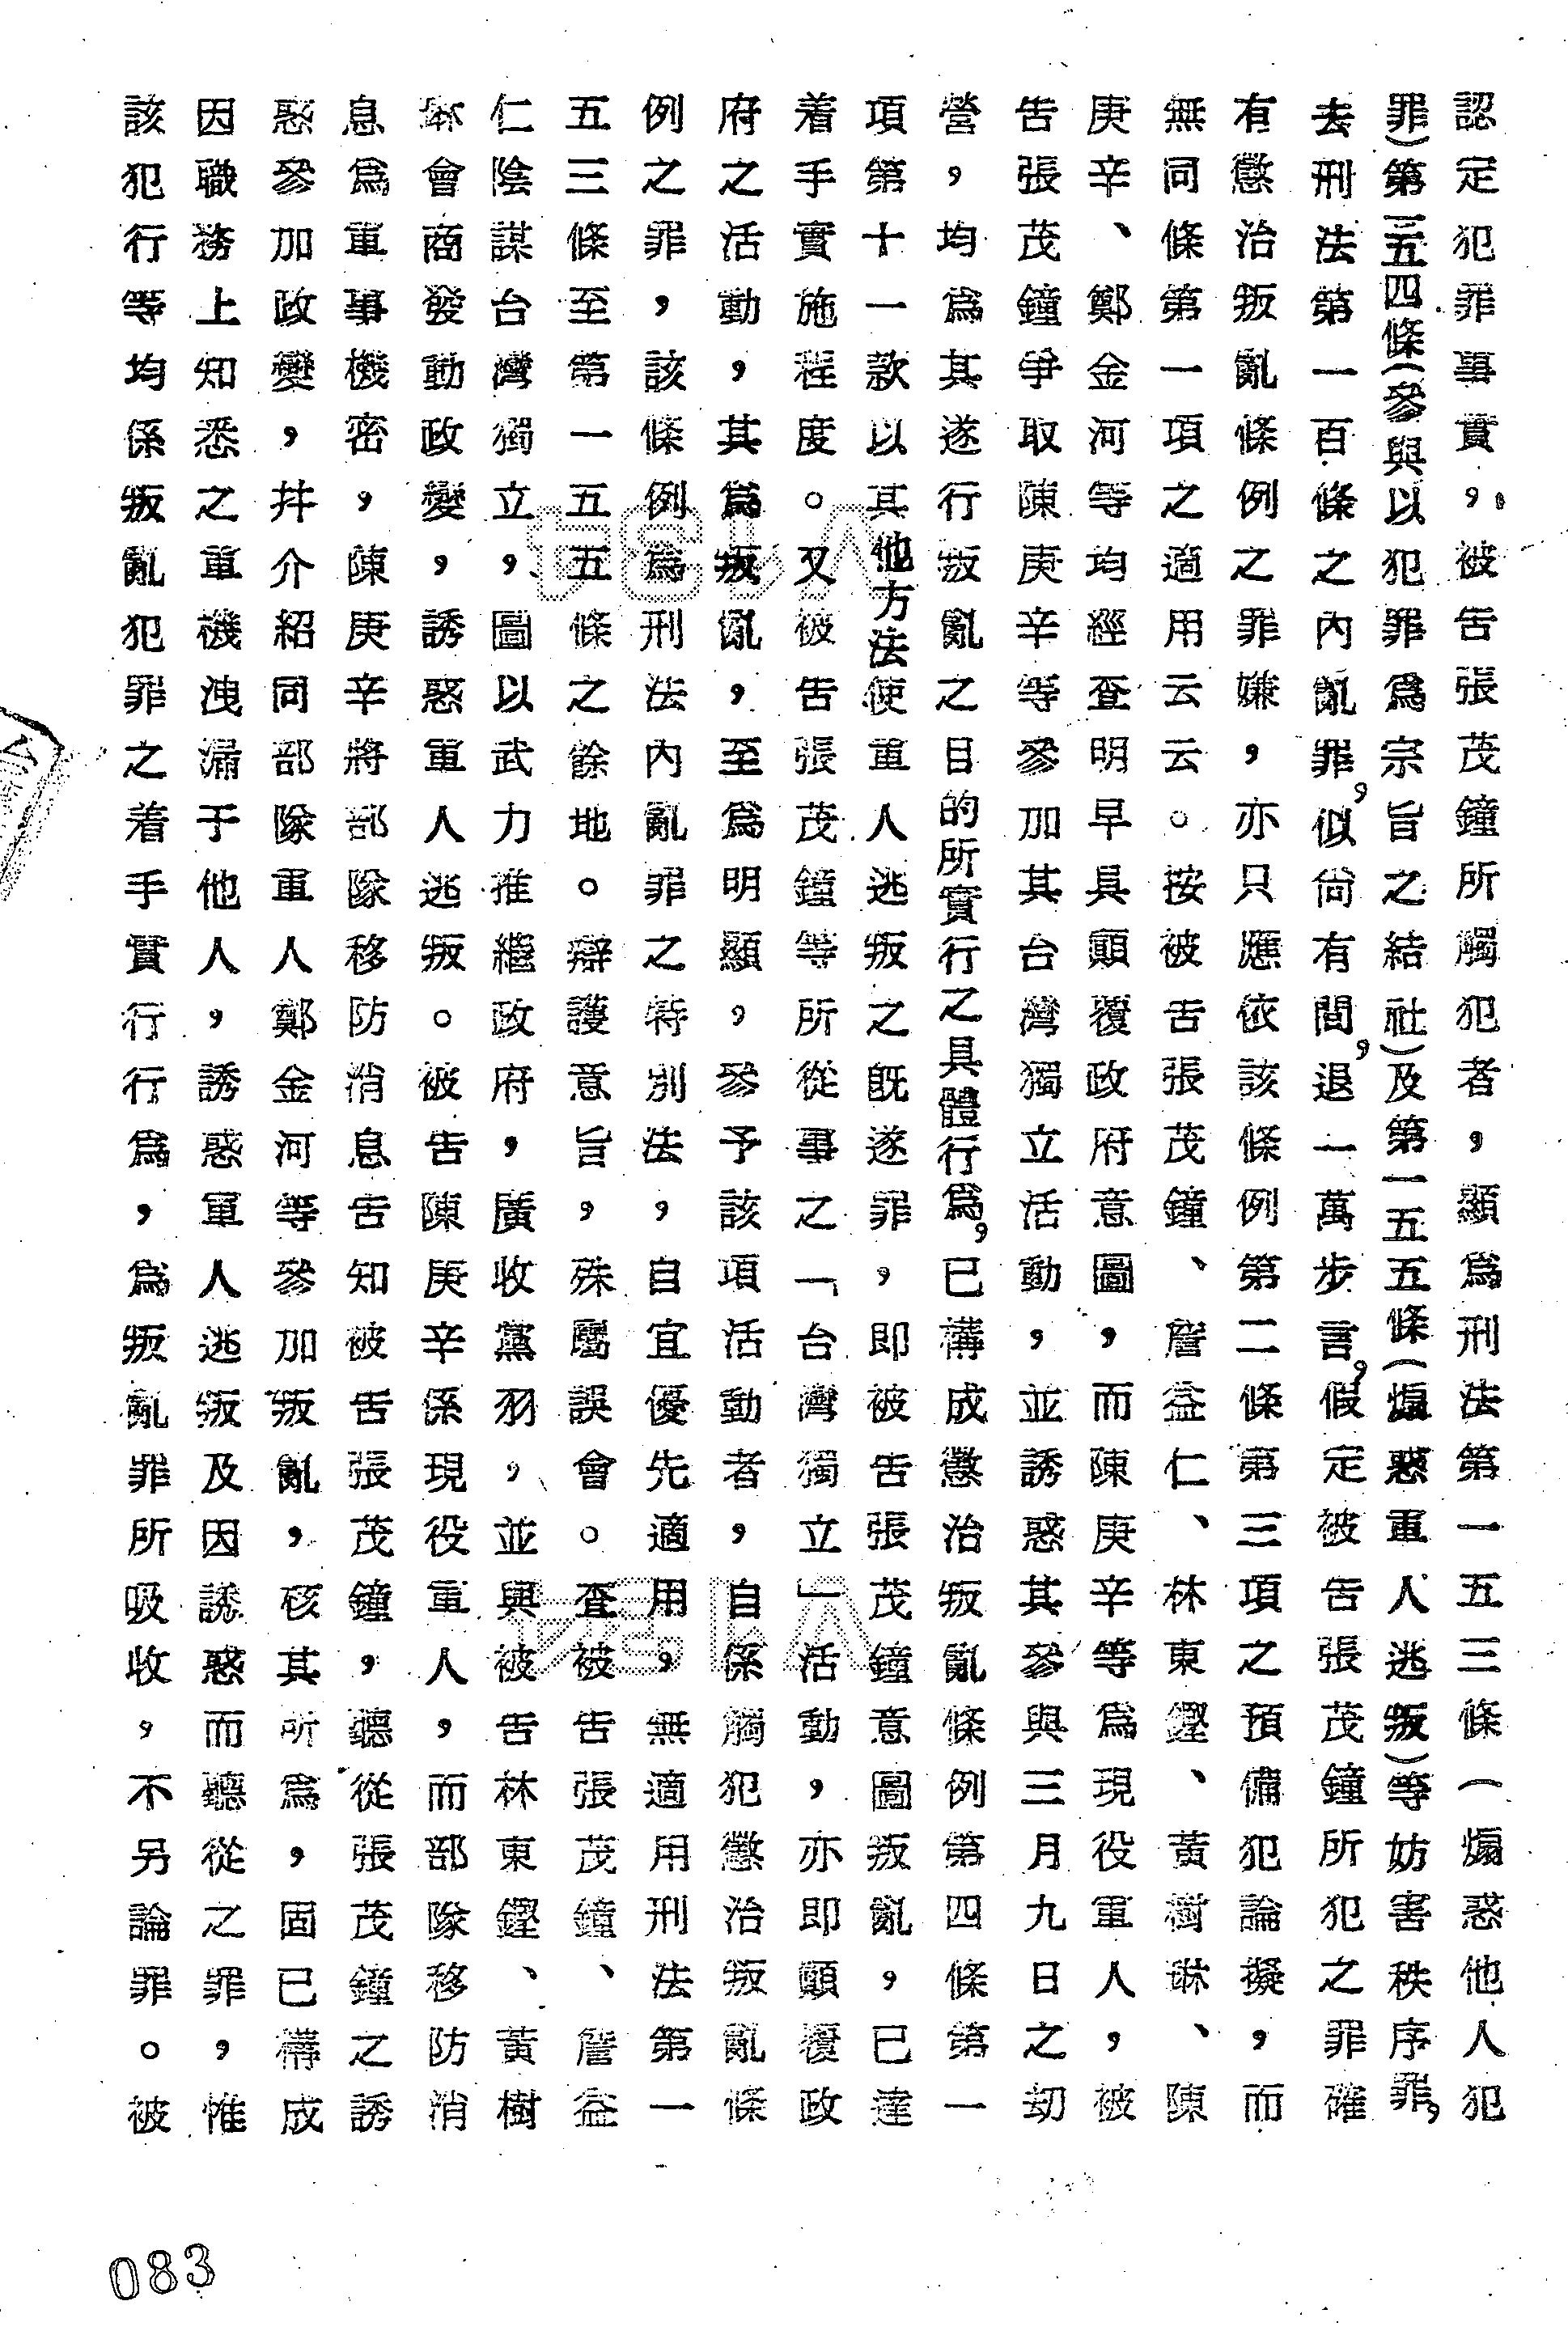 認定犯罪事實，被告張茂鐘所觸犯者，顯為刑法第一五三條（煽惑他人犯
罪）第一五四條（參與以犯罪為宗旨之結社）及第一五五條（煽惑軍人逃叛）等妨害秩序罪，
去刑法第一百條之內亂罪，似尚有間，退一萬步言，假定被告張茂鐘所犯之罪確
有懲治叛亂條例之罪嫌，亦只應依該條例第二條第三項之預備犯論擬，而
無同條第一項之適用云云。按被告張茂鐘、詹益仁、林東鏗、黃樹琳、陳
庚辛、鄭金河等均經查明早具顛覆政府意圖，而陳庚辛等為現役軍人，被
告張茂鐘爭取陳庚辛等參加其台灣獨立活動，並誘惑其參與三月九日之劫
營，均為其遂行叛亂之目的所實行之具體行為，已構成懲治叛亂條例第四條第一
項第十一款以其他方法使軍人逃叛之既遂罪，即被告張茂鐘意圖叛亂，已達
着手實施程度。又被告張茂鐘等所從事之「台灣獨立」活動，亦即顛覆政
府之活動，其為叛亂，至為明顯，參予該項活動者，自係觸犯懲治叛亂條
例之罪，該條例為刑法內亂罪之特別法，自宜優先適用，無適用刑法第一
五三條至第一五五條之餘地。辯護意旨，殊屬誤會。查被告張茂鐘、詹益
仁陰謀台灣獨立，圖以武力推繼政府，廣收黨羽，並與被告林東鏗、黃樹
琳會商發動政變，誘惑軍人逃叛。被告陳庚辛係現役軍人，而部隊移防消
息為軍事機密，陳庚辛將部隊移防消息告知被告張茂鐘，聽從張茂鐘之誘
惑參加政變，并介紹同部隊軍人鄭金河等參加叛亂，核其所為，固已構成
因職務上知悉之軍機洩漏于他人，誘惑軍人逃叛及因誘惑而聽從之罪，惟
該犯行等均係叛亂犯罪之着手實行行為，為叛亂罪所吸收，不另論罪。被
083